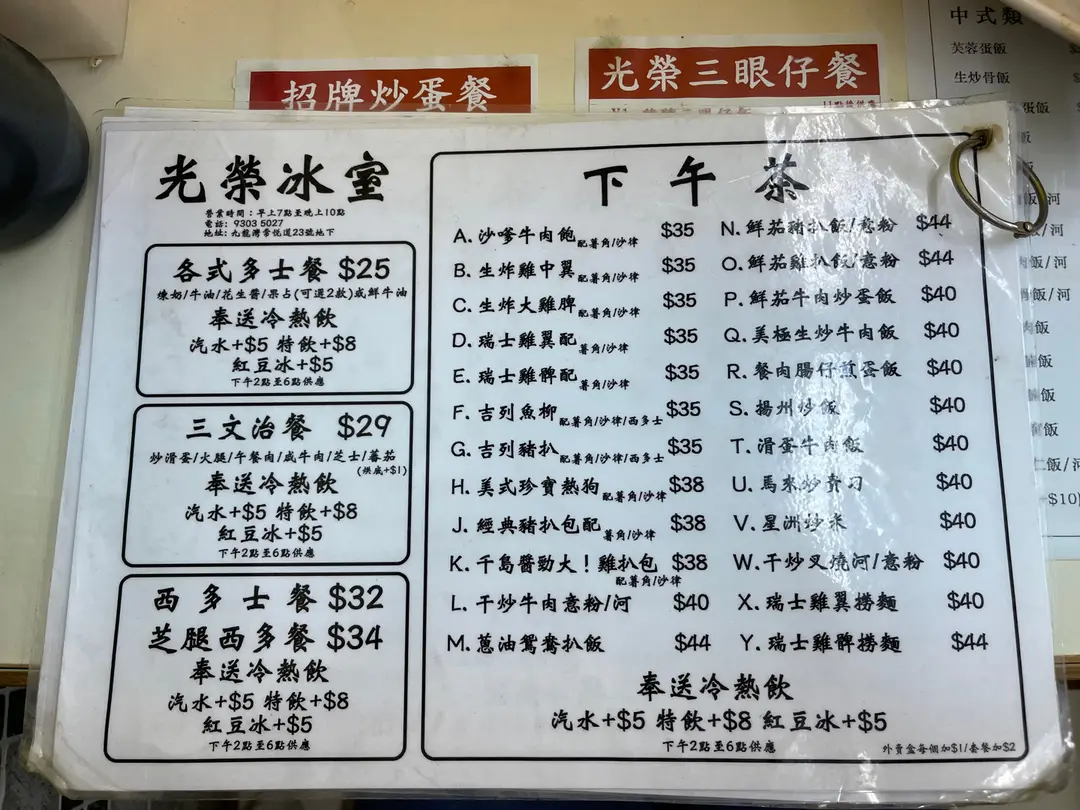 招牌炒蛋餐
光榮三眼仔餐
11點後供應
中式類
芙蓉蛋飯
生炒骨飯
光榮冰室
營業時間：早上7點至晚上10點
電話: 9303 5027
地址: 九龍灣常悅道23號地下
各式多士餐 $25
煉奶/牛油/花生醬/果占(可選2款)或鮮牛油
奉送冷熱飲
汽水+$5 特飲+$8
紅豆冰+$5
下午2點至6點供應
三文治餐 $29
炒滑蛋/火腿/午餐肉/咸牛肉/芝士/蕃茄
(烘底+$1)
奉送冷熱飲
汽水+$5 特飲+$8
紅豆冰+$5
下午2點至6點供應
西多士餐 $32
芝腿西多餐 $34
奉送冷熱飲
汽水+$5 特飲+$8
紅豆冰+$5
下午2點至6點供應
下午茶
A. 沙嗲牛肉飽配薯角/沙律 $35
B. 生炸雞中翼配薯角/沙律 $35
C. 生炸大雞脾配薯角/沙律 $35
D. 瑞士雞翼配薯角/沙律 $35
E. 瑞士雞髀配薯角/沙律 $35
F. 吉列魚柳配薯角/沙律/西多士 $35
G. 吉列豬扒配薯角/沙律/西多士 $35
H. 美式珍寶熱狗配薯角/沙律 $38
J. 經典豬扒包配薯角/沙律 $38
K. 千島醬勁大！雞扒包配薯角/沙律 $38
L. 干炒牛肉意粉/河 $40
M. 蔥油鴛鴦扒飯 $44
N. 鮮茄豬扒飯/意粉 $44
O. 鮮茄雞扒飯/意粉 $44
P. 鮮茄牛肉炒蛋飯 $40
Q. 美極生炒牛肉飯 $40
R. 餐肉腸仔煎蛋飯 $40
S. 揚州炒飯 $40
T. 滑蛋牛肉飯 $40
U. 馬來炒貴刁 $40
V. 星洲炒米 $40
W. 干炒叉燒河/意粉 $40
X. 瑞士雞翼撈麵 $40
Y. 瑞士雞髀撈麵 $44
奉送冷熱飲
汽水+$5 特飲+$8 紅豆冰+$5
下午2點至6點供應
外賣盒每個加$1/套餐加$2